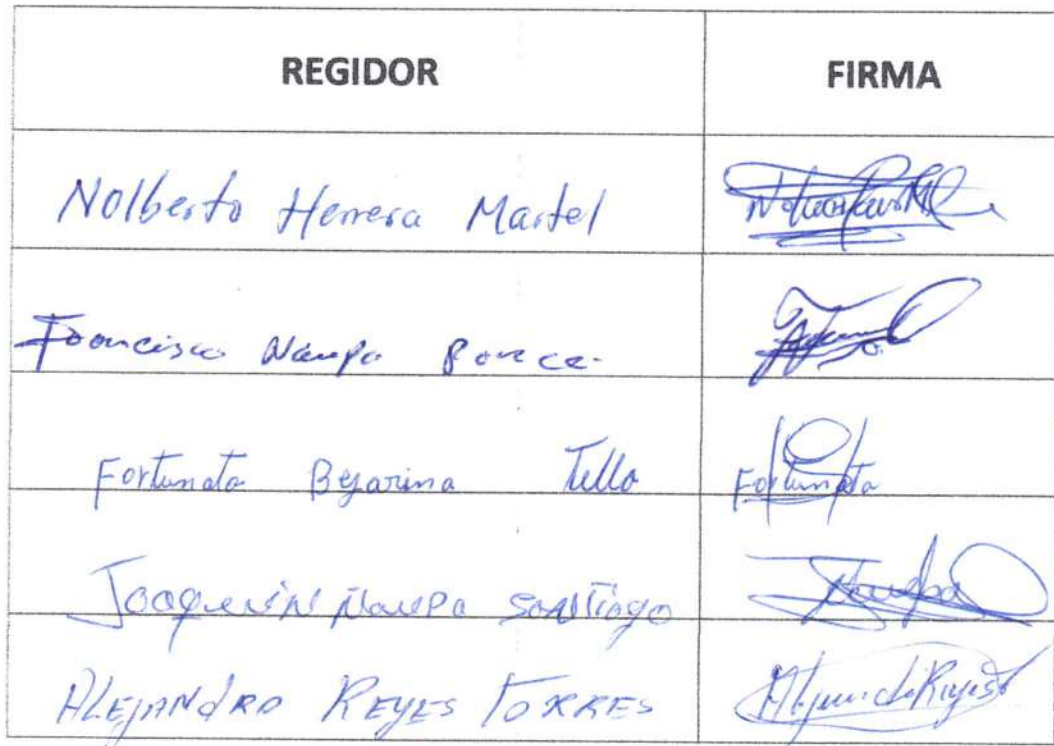 REGIDOR FIRMA
Nolberto Herrera Martel
Francisco Ñaupa Ponce
Fortunata Bejarina Tello Fortunata
Joaquin Ñaupa Santiago Ñaupa
ALEJANDRO REYES TORRES